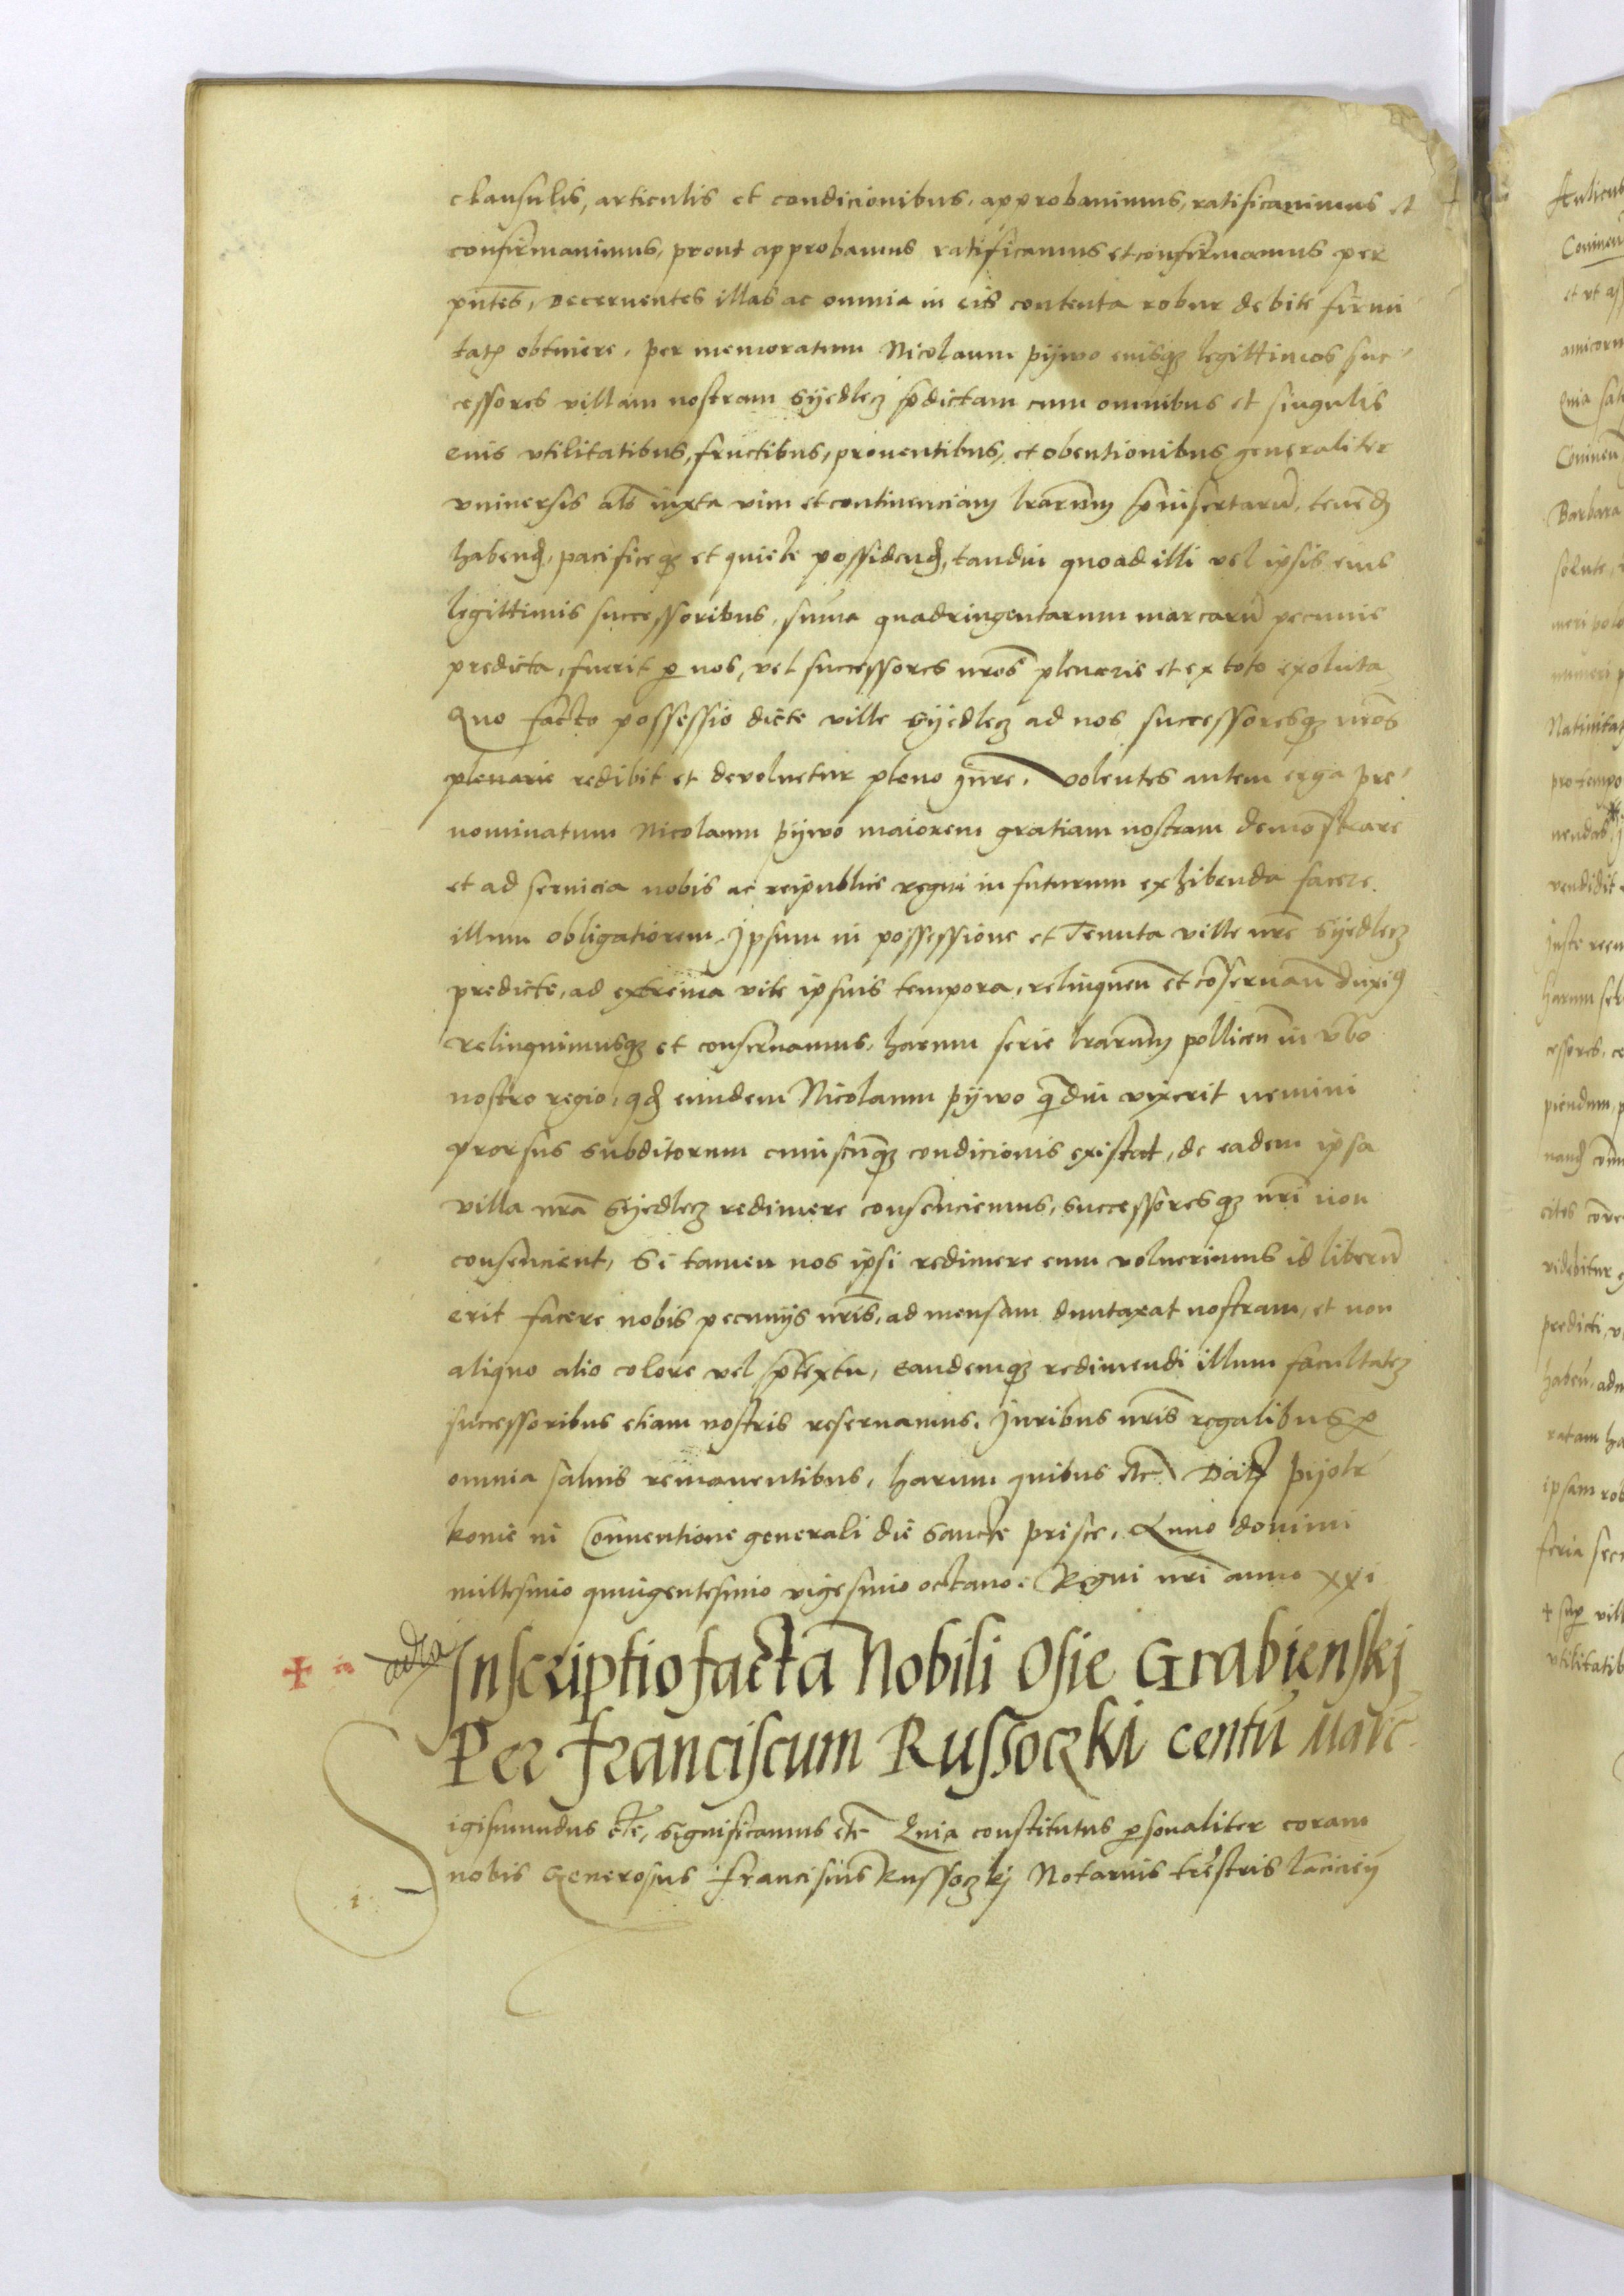 clausulis, articulis et condicionibus, approbauimus, ratificauimus et
confirmauimus, prout approbamus ratificamus et confirmamus per
pñtes, Decernentes illas ac omnia in eis contenta robur debite firmi
tatꝭ obtinere, per memoratum Nicolaum pijwo eiusqꝫ legittimos suc
cessores villam nostram Syedlecz p̄dictam cum omnibus et singulis
eius vtilitatibus, fructibus, prouentibus, et obentionibus generaliter
vniuersis als iuxta vim et continenciam lrarum p̄insertarū, tenen̄
haben̄, pacificeqꝫ et quiete possiden̄, tamdiu quoad illi vel ipsis eius
legittimis successoribus, sum̄a quadringentarum marcarū pecunie
predicta, fuerit ꝑ nos, vel successores nros plenarie et ex toto exoluta
Quo facto possessio dicte ville Syedlecz ad nos successoresqꝫ nros
plenarie redibit et deuoluetur pleno iure. Volentes autem erga pre
nominatum Nicolaum pijwo maiorem gratiam nostram demonstrare
et ad seruicia nobis ac reipublice regni in futurum exhibenda facere
illum obligatiorem, Ipsum in possessione et Tenuta ville nre Syedlecz
predicte, ad extrema vite ipsius tempora, relinquen̄ et cōseruan̄ duxiꝰ
relinquimusqꝫ et conseruamus, harum serie lrarum pollicen̄ in v̄bo
nostro regio, qd̄ eundem Nicolaum pijwo q̄mdiu vixerit nemini
prorsus subditorum cuiuscūqꝫ condicionis existat, de eadem ipsa
villa nrā Syedlecz redimere consenciemus, successoresqꝫ nri non
consencient, Si tamen nos ipsi redimere eum voluerimus id liberū
erit facere nobis pecunijs nris, ad mensam duntaxat nostram, et non
aliquo alio colore vel p̄textu, eandemqꝫ redimendi illum facultatē
successoribus etiam nostris reseruamus. Iuribus nris regalibus ꝑ
omnia saluis remanentibus, harum quibus etc̄ Dat̄ Pijotr
kouie in Conuentione generali die Sancte prisce, Anno domini
millesimo quingentesimo vigesimo octauo. Regni nri anno xxi
Inscriptio facta Nobili Osie Grabienskj
Per Franciscum Russoczki centū Marc
Sigismundus etc̄, Significamus etc̄ Quia constitutus ꝑsonaliter coram
nobis Generosus Franciscus Russoczkj Notarius tr̄estris